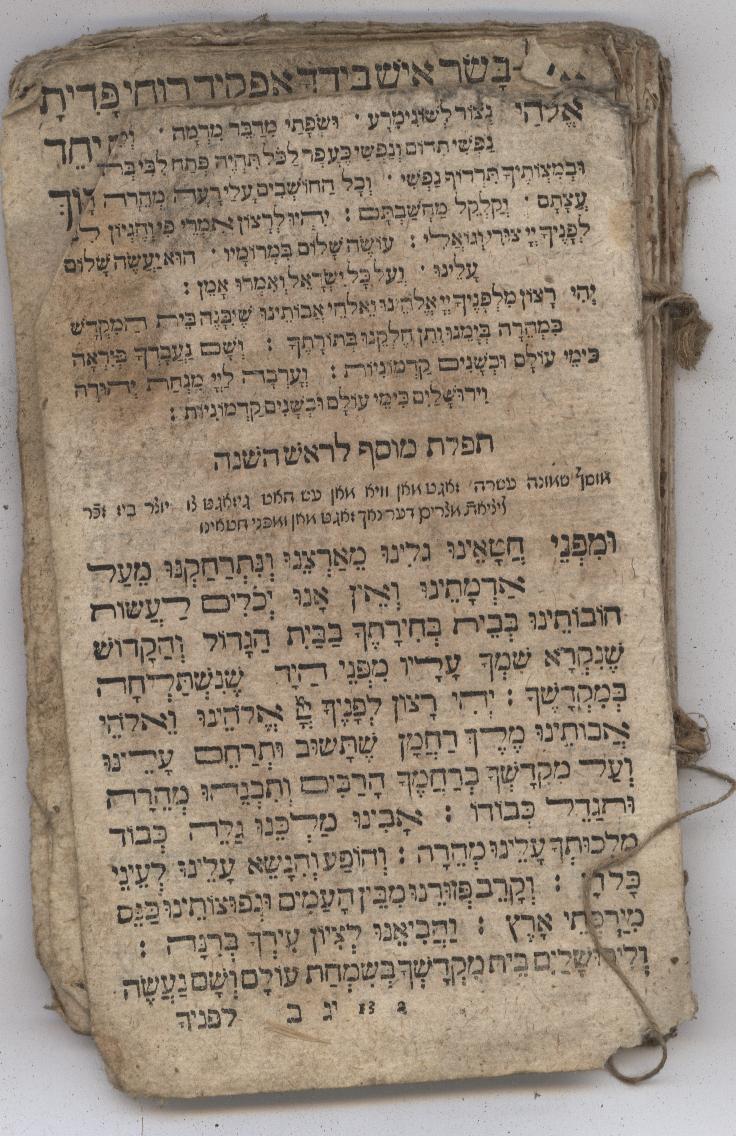 בָּשָׂר אִישׁ בְּיָדְךָ אַפְקִיד רוּחִי פָּדִיתָ
אֱלֹהַי נְצוֹר לְשׁוֹנִי מֵרָע · וּשְׂפָתַי מִדַּבֵּר מִרְמָה ·
נַפְשִׁי תִדּוֹם וְנַפְשִׁי כֶּעָפָר לַכֹּל תִּהְיֶה פְּתַח לִבִּי
וּבְמִצְוֹתֶיךָ תִּרְדּוֹף נַפְשִׁי · וְכָל הַחוֹשְׁבִים עָלַי רָעָה מְהֵרָה
עֲצָתָם · וְקַלְקֵל מַחֲשַׁבְתָּם : יִהְיוּ לְרָצוֹן אִמְרֵי פִי וְהֶגְיוֹן
לְפָנֶיךָ יְיָ צוּרִי וְגוֹאֲלִי : עוֹשֶׂה שָׁלוֹם בִּמְרוֹמָיו · הוּא יַעֲשֶׂה שָׁלוֹם
עָלֵינוּ · וְעַל כָּל יִשְׂרָאֵל וְאִמְרוּ אָמֵן :
יְהִי רָצוֹן מִלְּפָנֶיךָ יְיָ אֱלֹהֵינוּ וֵאלֹהֵי אֲבוֹתֵינוּ שֶׁיִּבָּנֶה בֵּית הַמִּקְדָּשׁ
בִּמְהֵרָה בְּיָמֵנוּ וְתֵן חֶלְקֵנוּ בְּתוֹרָתֶךָ : וְשָׁם נַעֲבָדְךָ בְּיִרְאָה
כִּימֵי עוֹלָם וּכְשָׁנִים קַדְמוֹנִיּוֹת : וְעָרְבָה לַיְיָ מִנְחַת יְהוּדָה
וִירוּשָׁלַיִם כִּימֵי עוֹלָם וּכְשָׁנִים קַדְמוֹנִיּוֹת :
תפלת מוסף לראש השנה
מוסף שמונה עשרה זאגט מאן וויא מאן עש האט גיזאגט צו יוצר ביז זכר
ליציאת מצרים דערנאך זאגט מאן ומפני חטאינו
וּמִפְּנֵי חֲטָאֵינוּ גָּלִינוּ מֵאַרְצֵנוּ וְנִתְרַחַקְנוּ מֵעַל
אַדְמָתֵינוּ וְאֵין אָנוּ יְכֹלִים לַעֲשׂוֹת
חוֹבוֹתֵינוּ בְּבֵית בְּחִירָתֶךָ בַּבַּיִת הַגָּדוֹל וְהַקָּדוֹשׁ
שֶׁנִּקְרָא שִׁמְךָ עָלָיו מִפְּנֵי הַיָּד שֶׁנִּשְׁתַּלְּחָה
בְּמִקְדָּשֶׁךָ : יְהִי רָצוֹן לְפָנֶיךָ יְיָ אֱלֹהֵינוּ וֵאלֹהֵי
אֲבוֹתֵינוּ מֶלֶךְ רַחֲמָן שֶׁתָּשׁוּב וּתְרַחֵם עָלֵינוּ
וְעַל מִקְדָּשְׁךָ בְּרַחֲמֶךָ הָרַבִּים וְתִבְנֵהוּ מְהֵרָה
וּתְגַדֵּל כְּבוֹדוֹ : אָבִינוּ מַלְכֵּנוּ גַּלֵּה כְּבוֹד
מַלְכוּתְךָ עָלֵינוּ מְהֵרָה : וְהוֹפַע וְהִנָּשֵׂא עָלֵינוּ לְעֵינֵי
כָּל חָי : וְקָרֵב פְּזוּרֵנוּ מִבֵּין הָעַמִּים וּנְפוּצוֹתֵינוּ כַּנֵּס
מִיַּרְכְּתֵי אָרֶץ : וַהֲבִיאֵנוּ לְצִיּוֹן עִירְךָ בְּרִנָּה :
וְלִירוּשָׁלַיִם בֵּית מִקְדָּשְׁךָ בְּשִׂמְחַת עוֹלָם וְשָׁם נַעֲשֶׂה
יג ב לפניך